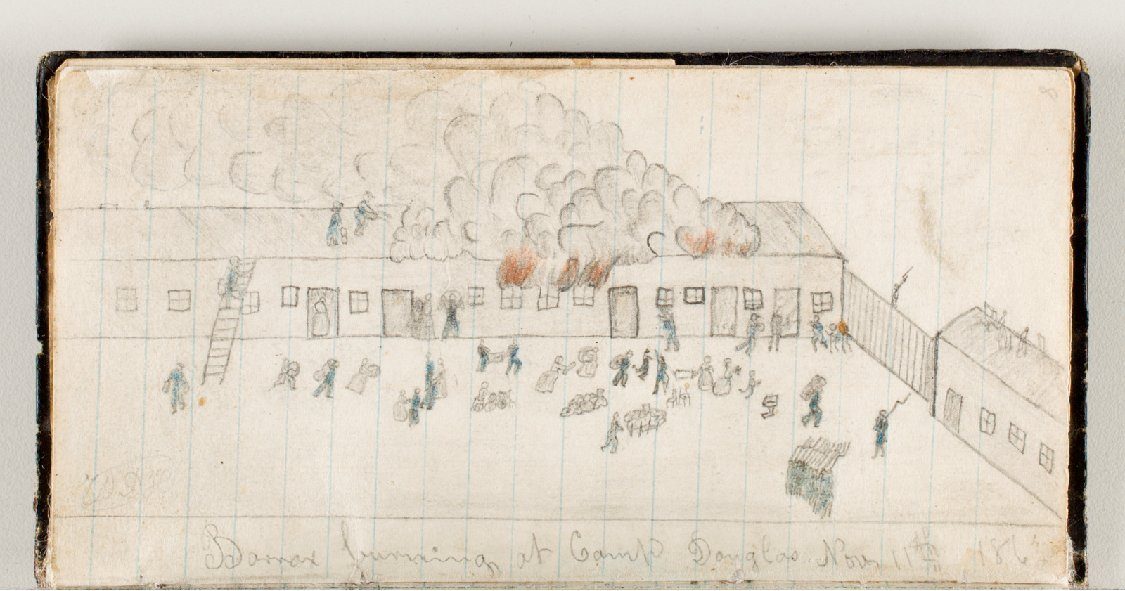 8
Barrax burning at Camp Douglas Nov 11th 1863